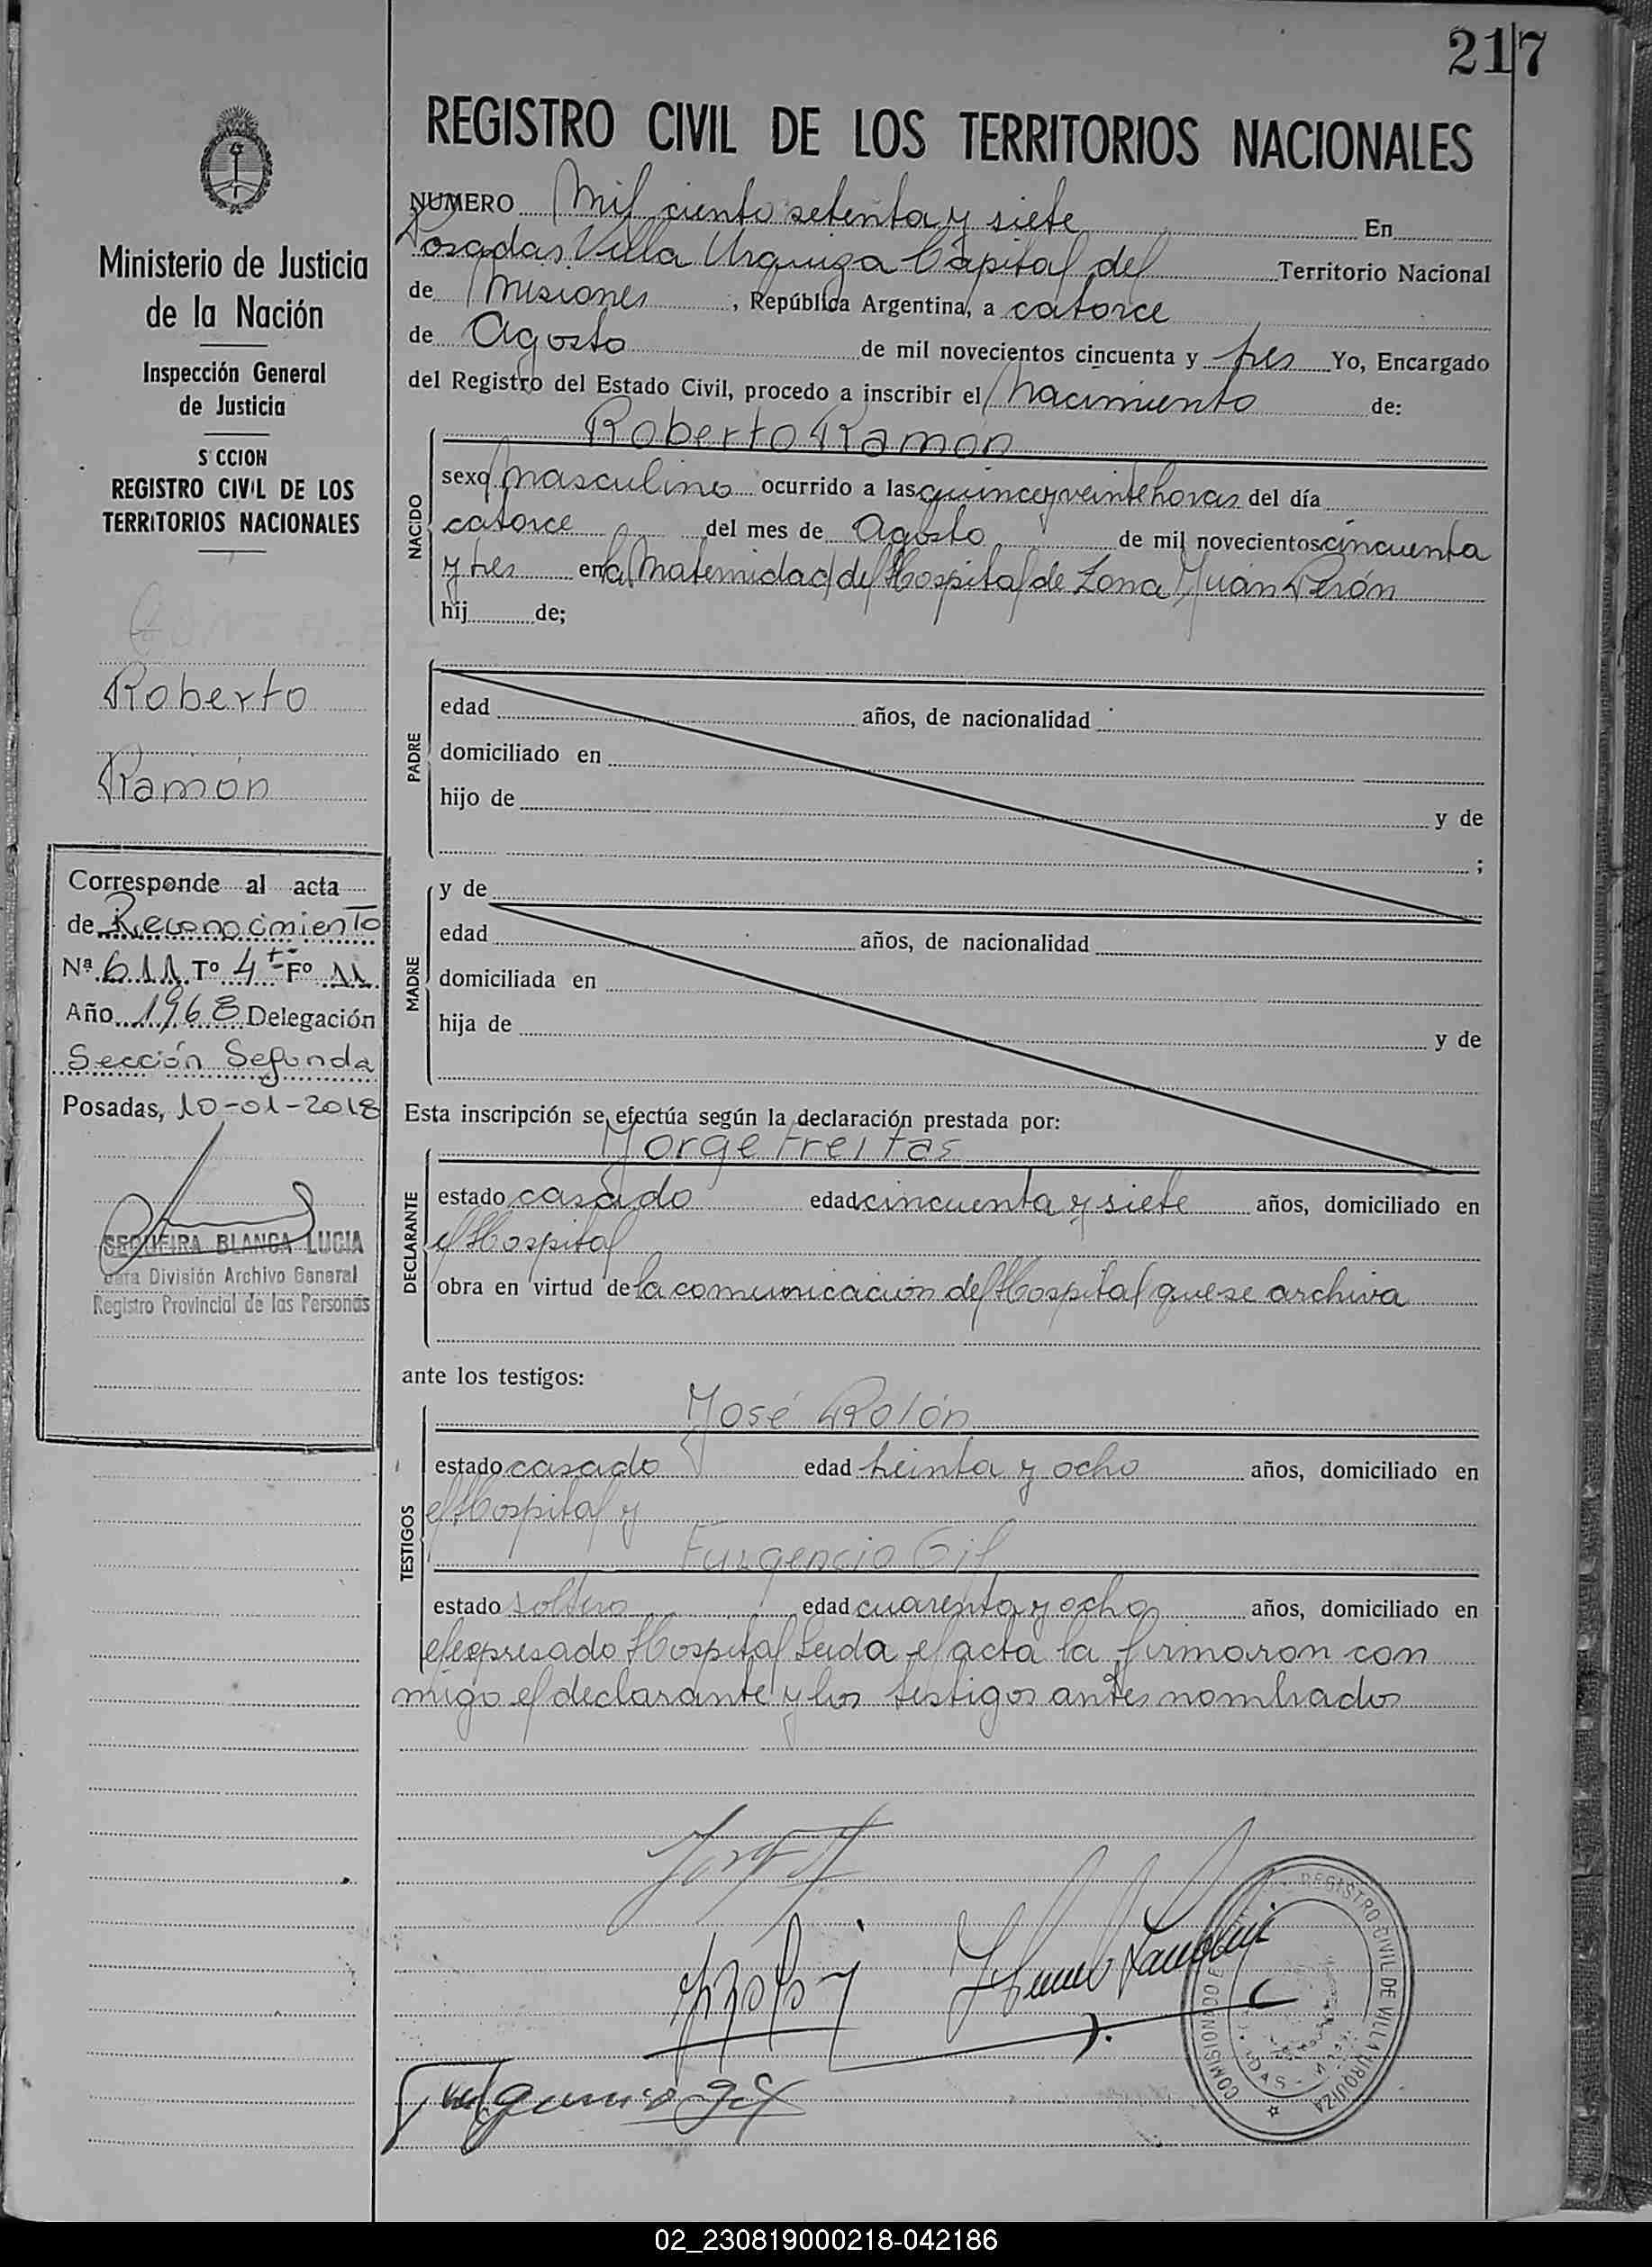 217
REGISTRO CIVIL DE LOS TERRITORIOS NACIONALES
NUMERO Mil ciento setenta y siete En
Posadas Villa Urquiza Capital del Territorio Nacional
de Misiones, República Argentina, a catorce
de Agosto de mil novecientos cincuenta y tres Yo, Encargado
del Registro del Estado Civil, procedo a inscribir el Nacimiento de:
NACIDO
Roberto Ramón
sexo masculino ocurrido a las quince y veinte horas del día
catorce del mes de Agosto de mil novecientos cincuenta
y tres en la Maternidad del Hospital de Zona Juán Perón
hij de;
PADRE
edad años, de nacionalidad
domiciliado en
hijo de y de
;
MADRE
y de
edad años, de nacionalidad
domiciliada en
hija de y de
Esta inscripción se efectúa según la declaración prestada por:
DECLARANTE
Jorge Freitas
estado casado edad cincuenta y siete años, domiciliado en
el Hospital
obra en virtud de la comunicación del Hospital que se archiva
ante los testigos:
TESTIGOS
José Rolón
estado casado edad treinta y ocho años, domiciliado en
el Hospital y
Furgencio Gil
estado soltero edad cuarenta y ocho años, domiciliado en
el expresado Hospital Leida el acta la firmaron con
migo el declarante y los testigos antes nombrados
REGISTRO CIVIL DE VILLA URQUIZA
COMISIONADO
Ministerio de Justicia
de la Nación
Inspección General
de Justicia
S CCION
REGISTRO CIVIL DE LOS
TERRITORIOS NACIONALES
Roberto
Ramón
Corresponde al acta
de Reconocimiento
Nª 611 Tº 4 Fº 11
Año 1968 Delegación
Sección Segunda
Posadas, 10-01-2018
SEQUEIRA BLANCA LUCIA
División Archivo General
Registro Provincial de las Personas
02_230819000218-042186